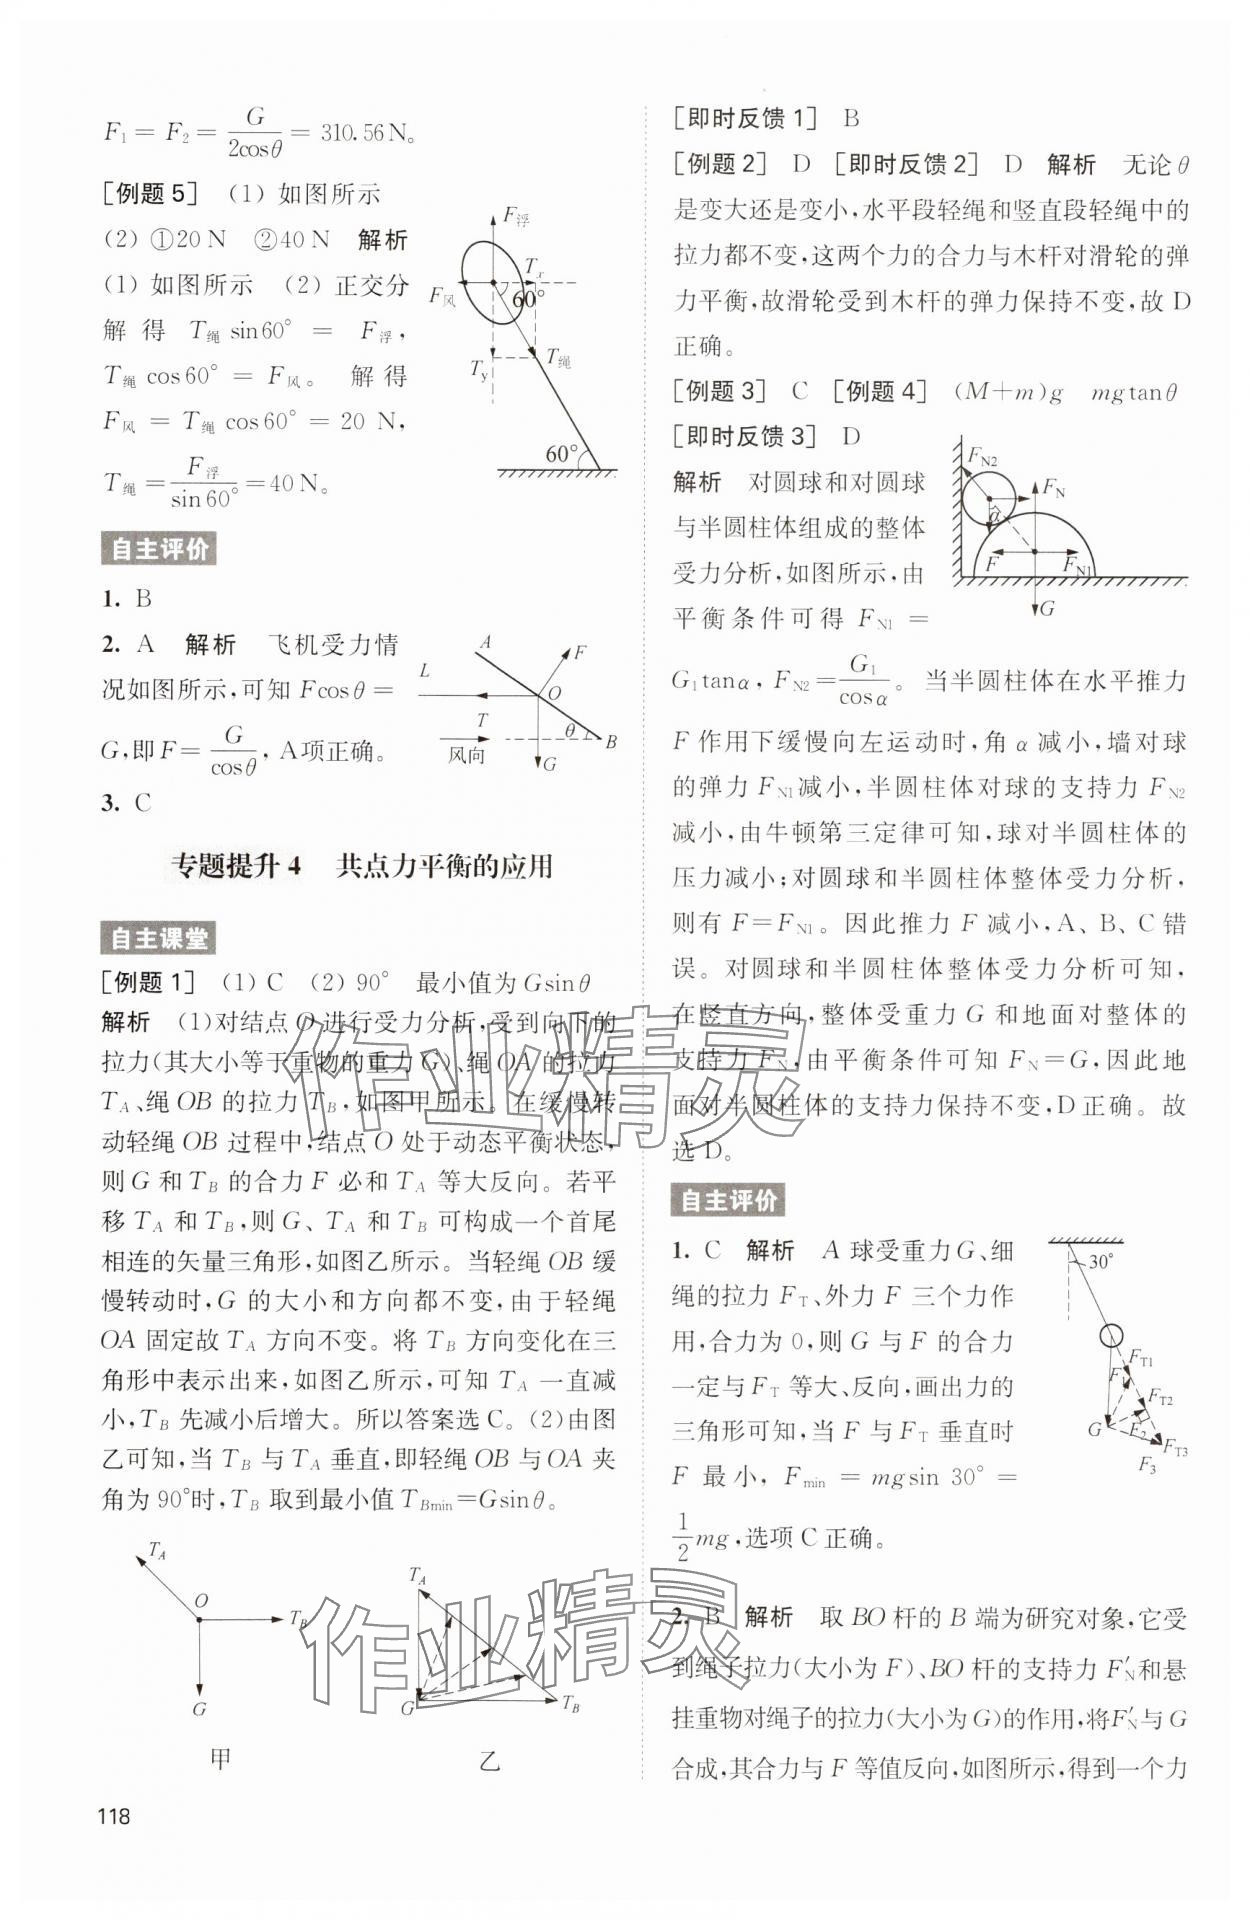 F₁ = F₂ = G/(2cosθ) = 310.56 N。
[例题5] (1) 如图所示
(2) ①20 N ②40 N 解析
(1) 如图所示 (2) 正交分
解得 T绳 sin60° = F浮,
T绳 cos60° = F风。 解得
F风 = T绳 cos60° = 20 N,
T绳 = F浮/sin60° = 40 N。
F浮
Tx
F风
60°
Ty
T绳
60°
自主评价
1. B
2. A 解析 飞机受力情
况如图所示,可知 Fcosθ =
G,即 F = G/cosθ, A项正确。
A
F
L
O
T
θ
B
风向
G
3. C
专题提升 4 共点力平衡的应用
自主课堂
[例题1] (1) C (2) 90° 最小值为 Gsinθ
解析 (1)对结点 O 进行受力分析,受到向下的
拉力(其大小等于重物的重力 G)、绳 OA 的拉力
T_A、绳 OB 的拉力 T_B,如图甲所示。在缓慢转
动轻绳 OB 过程中,结点 O 处于动态平衡状态,
则 G 和 T_B 的合力 F 必和 T_A 等大反向。若平
移 T_A 和 T_B,则 G、T_A 和 T_B 可构成一个首尾
相连的矢量三角形,如图乙所示。当轻绳 OB 缓
慢转动时,G 的大小和方向都不变,由于轻绳
OA 固定故 T_A 方向不变。将 T_B 方向变化在三
角形中表示出来,如图乙所示,可知 T_A 一直减
小,T_B 先减小后增大。所以答案选C。(2)由图
乙可知,当 T_B 与 T_A 垂直,即轻绳 OB 与 OA 夹
角为 90°时,T_B 取到最小值 T_Bmin=Gsinθ。
T_A
O
T_B
G
甲
T_A
G
T_B
乙
118
[即时反馈1] B
[例题2] D [即时反馈2] D 解析 无论 θ
是变大还是变小,水平段轻绳和竖直段轻绳中的
拉力都不变,这两个力的合力与木杆对滑轮的弹
力平衡,故滑轮受到木杆的弹力保持不变,故 D
正确。
[例题3] C [例题4] (M+m)g mgtanθ
[即时反馈3] D
解析 对圆球和对圆球
与半圆柱体组成的整体
受力分析,如图所示,由
平衡条件可得 F_N1 =
F_N2
F_N
α
F
F_N1
G
G₁tanα, F_N2 = G₁/cosα。 当半圆柱体在水平推力
F 作用下缓慢向左运动时,角 α 减小,墙对球
的弹力 F_N1 减小,半圆柱体对球的支持力 F_N2
减小,由牛顿第三定律可知,球对半圆柱体的
压力减小;对圆球和半圆柱体整体受力分析,
则有 F=F_N1。因此推力 F 减小,A、B、C 错
误。对圆球和半圆柱体整体受力分析可知,
在竖直方向,整体受重力 G 和地面对整体的
支持力 F_N,由平衡条件可知 F_N=G,因此地
面对半圆柱体的支持力保持不变,D正确。故
选D。
自主评价
1. C 解析 A 球受重力 G、细
绳的拉力 F_T、外力 F 三个力作
用,合力为 0,则 G 与 F 的合力
一定与 F_T 等大、反向,画出力的
三角形可知,当 F 与 F_T 垂直时
F 最小, F_min = mgsin 30° =
1/2 mg,选项 C 正确。
30°
F_T1
F₁
F_T2
G
F₂
F_T3
F₃
2. B 解析 取 BO 杆的 B 端为研究对象,它受
到绳子拉力(大小为 F)、BO 杆的支持力 F′_N 和悬
挂重物对绳子的拉力(大小为 G)的作用,将F′_N 与 G
合成,其合力与 F 等值反向,如图所示,得到一个力
作业精灵
作业精灵